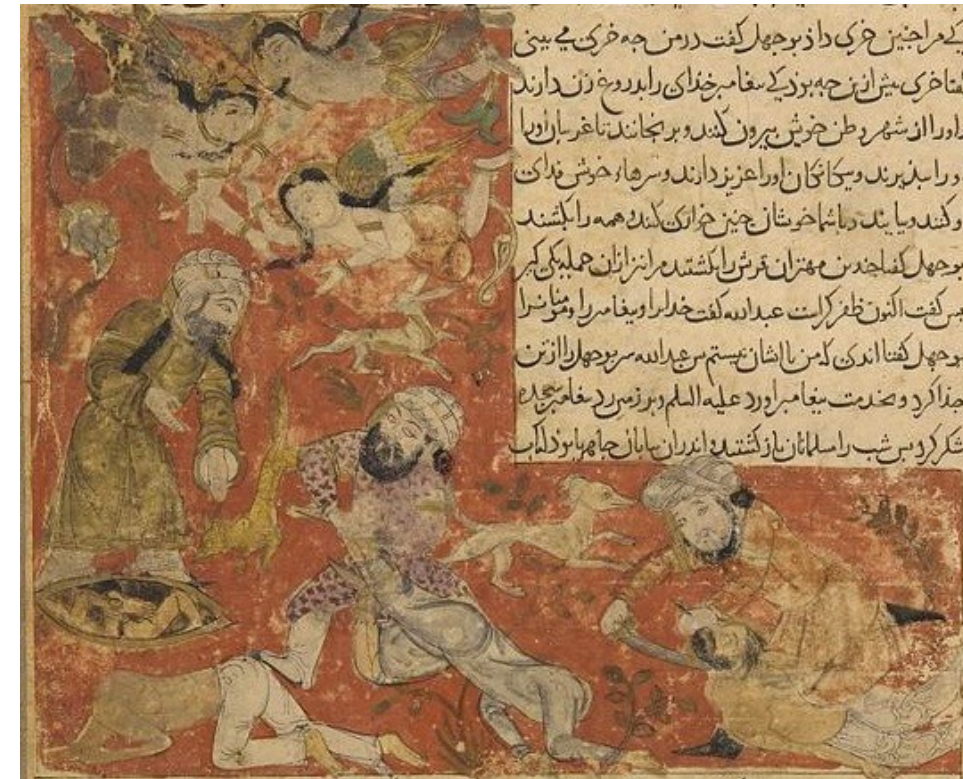 مرا جنین خری داذ بوجهل کفت در من جه خری می بینی
خری بیش ازین جه بوذ کی بیغامبر خدای را بدروغ زن دارند
اورا از شهر و طن خویش بیرون کنند و برنجانند تا غریبان اورا
را بذیرند و بیکانکان اورا عزیز دارند و سرهاء خویش فدای
کنند و بیایند و با شما خویشان جنین خواری کنند همه را بکشند
بوجهل کفتا جندین مهتران قریش را بکشتند مرا نیز از ان جمله یکی کیر
بس کفت اکنون ظفر کراست عبدالله کفت خدایرا و بیغامبر را و مومنانرا
بوجهل کفتا اندی کی من با ایشان نیستم بس عبدالله سر بوجهل را از تن
جذا کرد و بخدمت بیغامبر اورد علیه السلم و بر زمین زد بیغامبر سجده
شکر کرد بس شب را مسلمانان باز کشتند و اندران بیابان جاهها بوذ